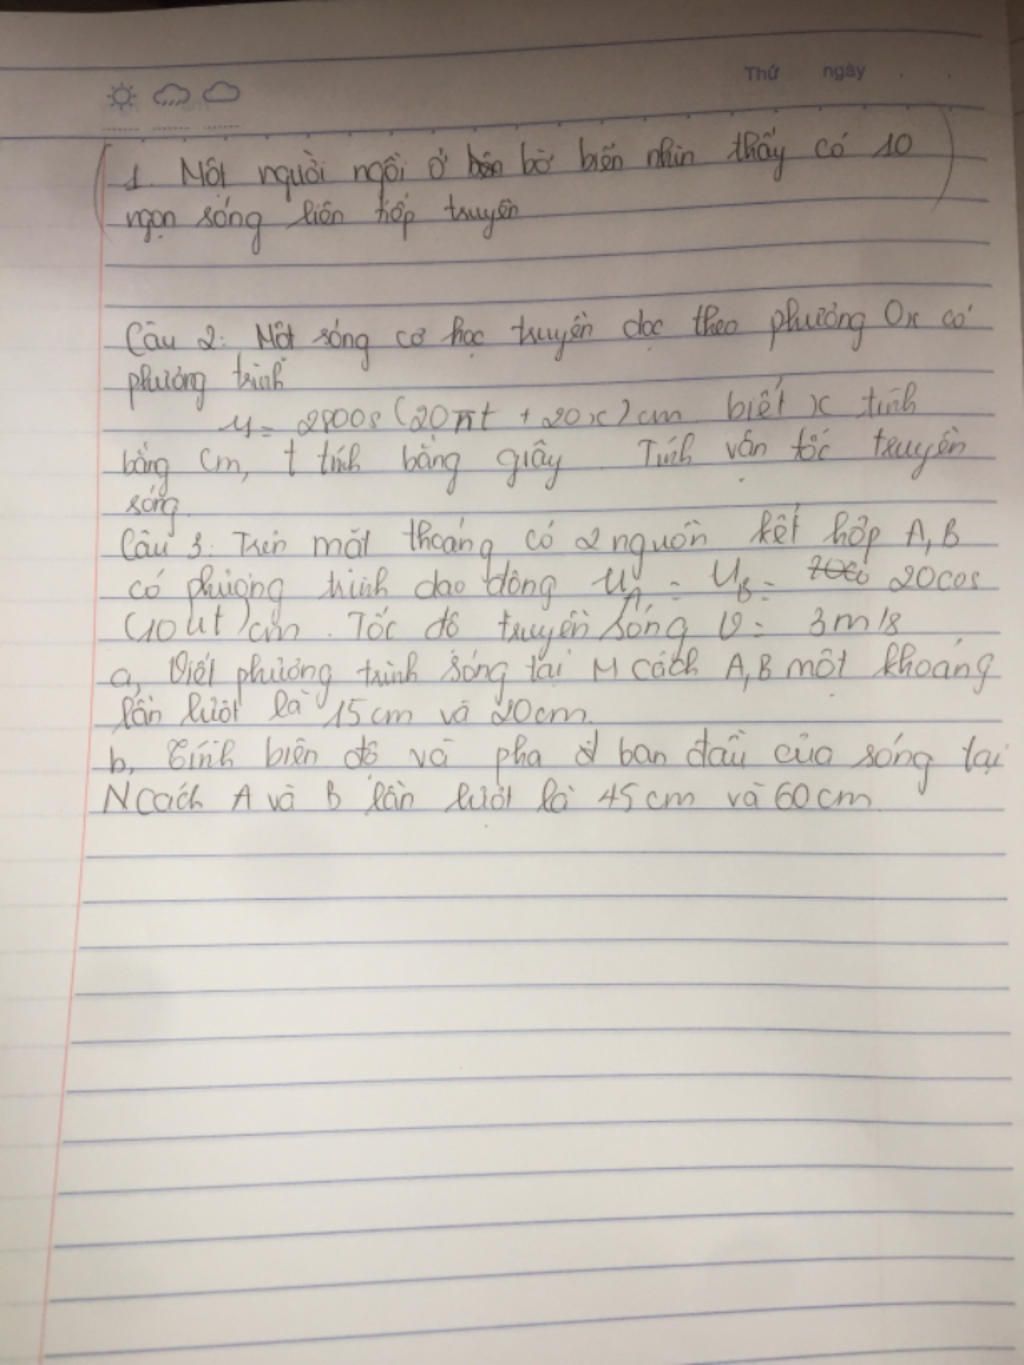 Thứ ngày
1. Một người ngồi ở bờ biển nhìn thấy có 10
ngọn sóng liên tiếp truyền
Câu 2: Một sóng cơ học truyền dọc theo phương Ox có
phương trình
u = 28cos (20πt + 20x) cm biết x tính
bằng cm, t tính bằng giây Tính vận tốc truyền
sóng.
Câu 3: Trên mặt thoáng có 2 nguồn kết hợp A, B
có phương trình dao động u_A = u_B = 20cos
(10πt) cm. Tốc độ truyền sóng v = 3m/s
a, Viết phương trình sóng tại M cách A, B một khoảng
lần lượt là 15cm và 20cm.
b, Tính biên độ và pha ban đầu của sóng tại
N cách A và B lần lượt là 45cm và 60cm.